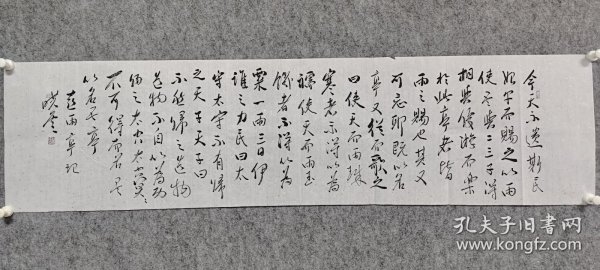 今天不遺斯民
始旱而賜之以雨
使吾與二三子得
相與優游而樂
於此亭者皆
雨之賜也其又
可忘耶既以名
亭又從而歌之
曰使天而雨珠
寒者不得以為
襦使天而雨玉
饑者不得以為
粟一雨三日伊
誰之力民曰太
守太守不有歸
之天子天子曰
不然歸之造物
造物不自以為功
歸之太空太空冥冥
不可得而名吾
以名吾亭
喜雨亭記
孔夫子旧书网
www.kongfz.com